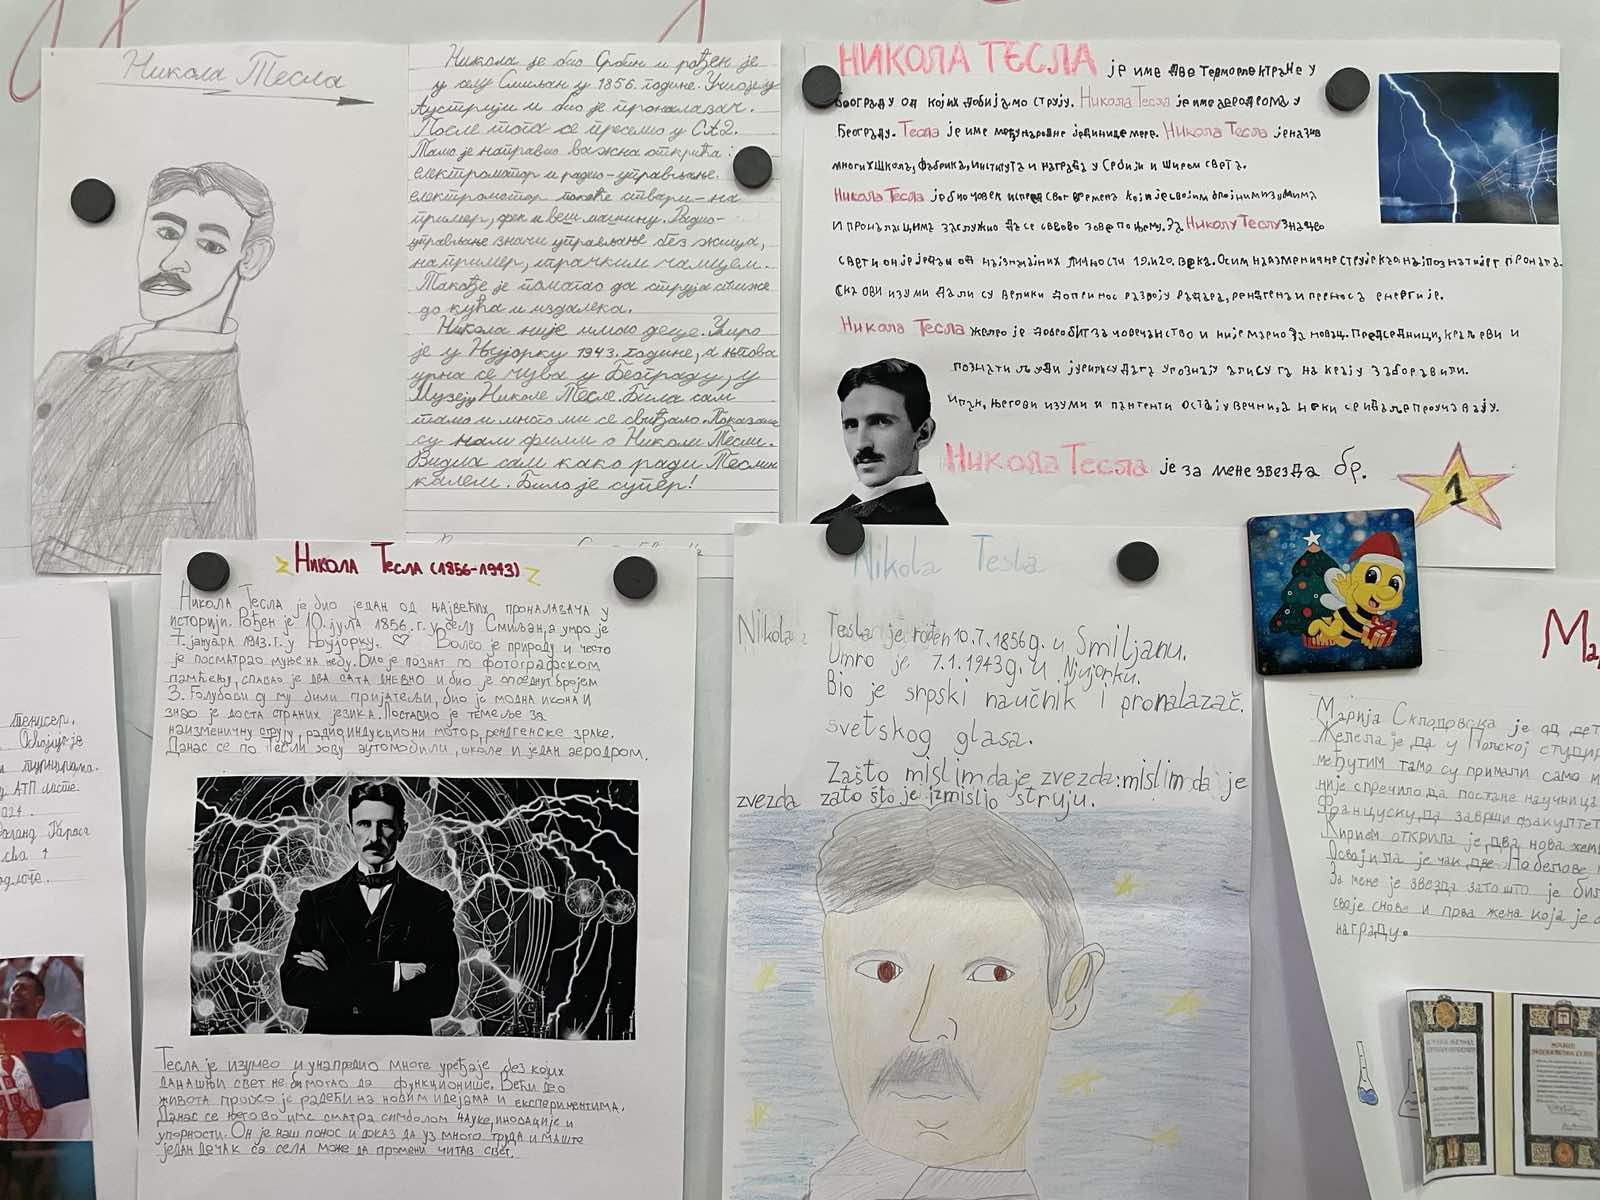 Никола Тесла
Никола је био Србин и рођен је
у селу Смиљан у 1856. године. Учио је у
Аустрији и био је проналазач.
После тога се преселио у САД.
Тамо је направио важна открића:
електромотор и радио-управљање.
електромотор покреће ствари - на
пример, фен и веш машину. Радио-
управљање значи управљање без жица,
на пример, играчким чамцем.
Такође је помагао да струја стиже
до кућа и издалека.
Никола није имао децу. Умро
је у Њујорку 1943. године, а његова
урна се чува у Београду, у
Музеју Николе Тесле. Била сам
тамо и много ми се свиђало. Показали
су нам филм о Николи Тесли.
Видела сам како ради Теслин
калем. Било је супер!
НИКОЛА ТЕСЛА је име две термоелектране у
Београду од којих добијамо струју. Никола Тесла је име аеродрома у
Београду. Тесла је име међународне јединице мере. Никола Тесла је назив
многих школа, фабрика, института и награда у Србији и широм света.
Никола Тесла је био човек испред свог времена који је својим бројним изумима
и проналацима заслужио да се овово зове по њему. За Николу Теслу знацео
свет и он је један од најзнајних личности 19. и 20. века. Осим наизменичне струје као најпознатијег пронала-
ска ови изуми дали су велики допринос развоју радара, рендгена и преноса енергије.
Никола Тесла желео је добробит за човечанство и није марио за новац. Председници, краљеви и
познати људи јурили су да га упознају али су га на крају заборавили.
Ипак, његови изуми и пантенти остају вечни, а неки се и даље проучавају.
Никола Тесла је за мене звезда бр.
1
Никола Тесла (1856-1943)
Никола Тесла је био један од највећих проналазача у
историји. Рођен је 10. јула 1856. г. у селу Смиљан, а умро је
7. јануара 1943. г. у Њујорку. ♡ Волео је природу и често
је посматрао муње на небу. Био је познат по фотографском
памћењу, спавао је два сата дневно и био је опседнут бројем
3. Голубови су му били пријатељи, био је модна икона и
знао је доста страних језика. Поставио је темеље за
наизменичну струју, радио, индукциони мотор, рендгенске зраке.
Данас се по Тесли зову аутомобили, школе и један аеродром.
Тесла је изумео и унапредио многе уређаје без којих
данашњи свет не би могао да функционише. Већи део
живота провео је радећи на новим идејама и експериментима.
Данас се његово име сматра симболом науке, иновације и
упорности. Он је наш понос и доказ да уз много труда и маште
један дечак са села може да промени читав свет.
Nikola Tesla
Nikola Tesla je rođen 10.7.1856g. u Smiljanu.
Umro je 7.1.1943g. u Njujorku.
Bio je srpski naučnik i pronalazač.
svetskog glasa.
Zašto mislim da je zvezda: mislim da je
zvezda zato što je izmislio struju.
Ма
Марија Склодовска је од дет
Желела је да у Пољској студир
међутим тамо су примали само м
није спречило да постане научница
Француску, да заврши факултет
Киријем открила је два нова хеми
Освојила је чак две Нобелове
За мене је звезда зато што је бил
своје снове и прва жена која је о
награду.
тенисер.
Освојио је
турнира.
АТП листе
2024
Роланд Гароса